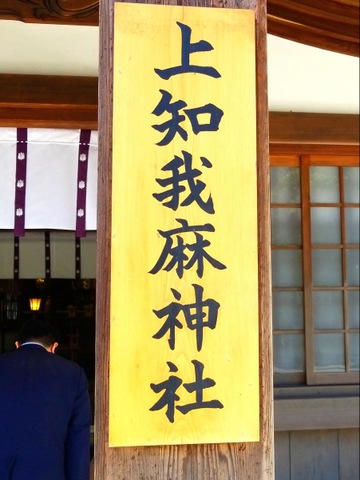 上知我麻神社